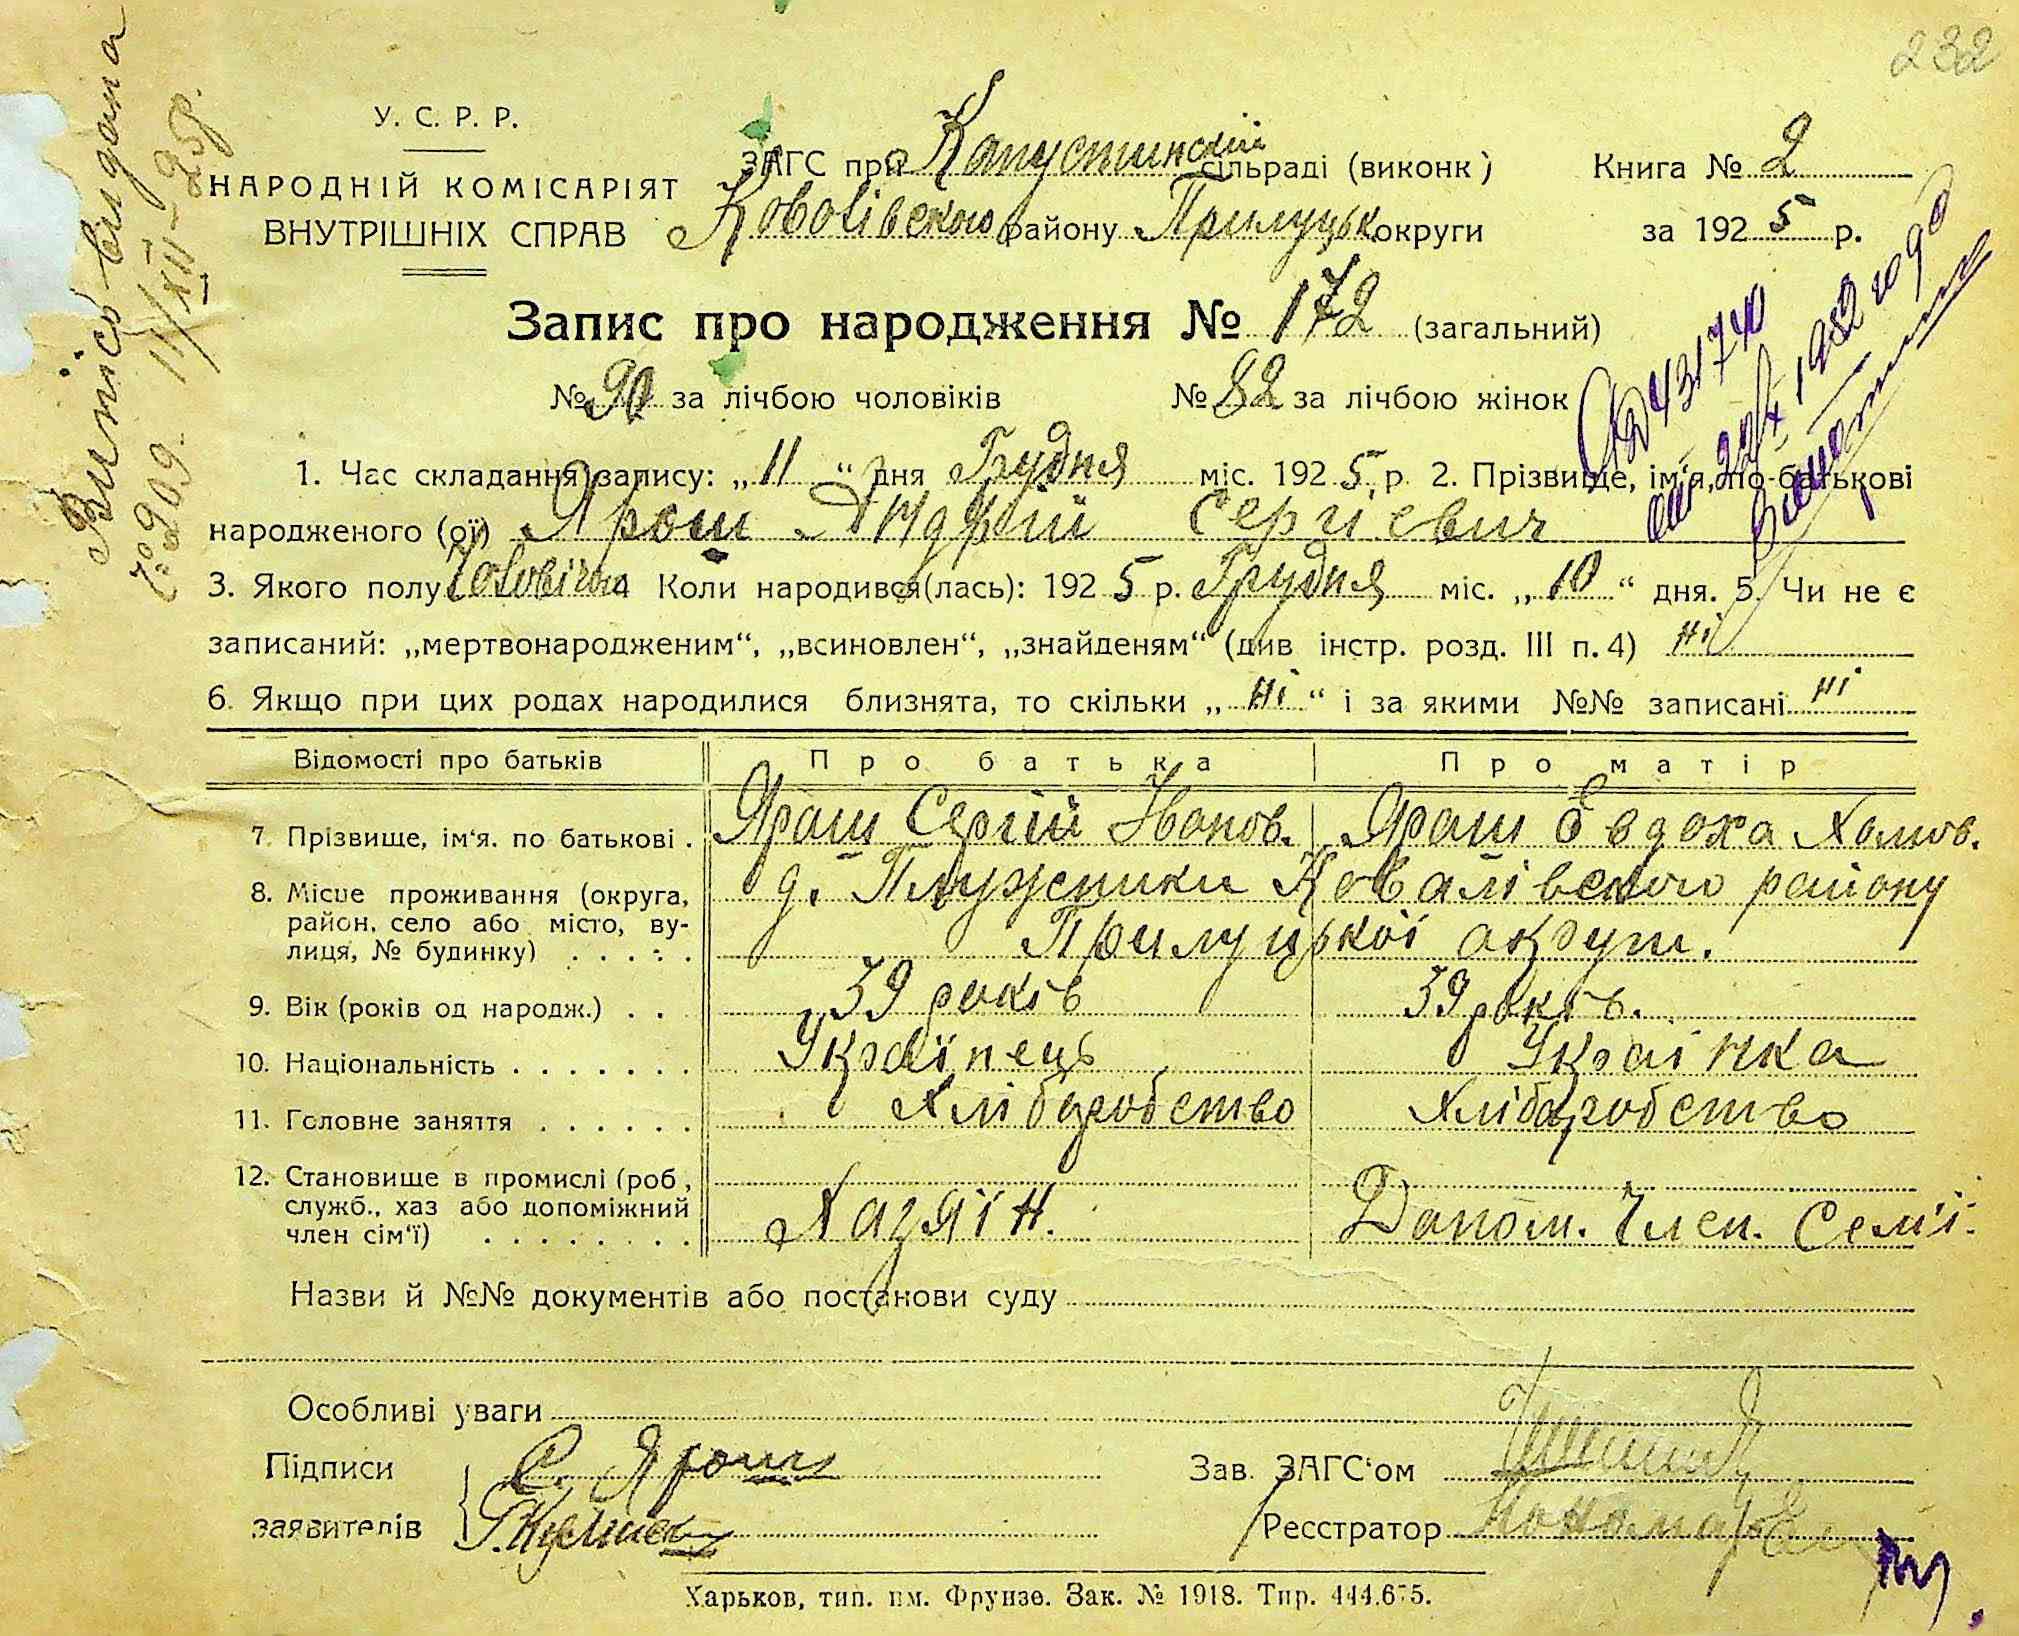 232
Випись видана
11/XII-25р.
№ 209
У. С. Р. Р.
НАРОДНІЙ КОМІСАРІЯТ
ВНУТРІШНІХ СПРАВ
ЗАГС при Капустинскій сільраді (виконк)
Ковалівского району Прилуцьк. округи
Книга № 2
за 1925 р.
Запис про народження № 172 (загальний)
№ 90 за лічбою чоловіків № 82 за лічбою жінок
431740
1982 года
1. Час складання запису: „11“ дня Грудня міс. 1925 р. 2. Прізвище, ім‘я, по-батькові
народженого (ої) Ярош Андрій Сергієвич
3. Якого полу Чоловічого 4 Коли народився(лась): 1925 р. Грудня міс. „10“ дня. 5. Чи не є
записаний: „мертвонародженим“, „всиновлен“, „знайденям“ (див інстр. розд. III п. 4) ні
6. Якщо при цих родах народилися близнята, то скільки „ні“ і за якими №№ записані ні
Відомості про батьків Про батька Про матір
7. Прізвище, ім‘я. по батькові . Ярош Сергій Іванов. Ярош Євдоха Хомов.
8. Місце проживання (округа, район, село або місто, вулиця, № будинку) . . . . . д. Плужники Ковалівского району
Прилуцької округи.
9. Вік (років од народж.) . . 39 років 39 років.
10. Національність . . . . . . . Українець Українка
11. Головне заняття . . . . . . Хліборобство Хліборобство
12. Становище в промислі (роб, служб., хаз або допоміжний член сім‘ї) . . . . . . . . Хазяїн. Допом. Член. Семї.
Назви й №№ документів або постанови суду
Особливі уваги
Підписи С. Ярош
заявителів
Зав. ЗАГС‘ом
Ресстратор
Харьков, тип. им. Фрунзе. Зак. № 1918. Тир. 444.675.